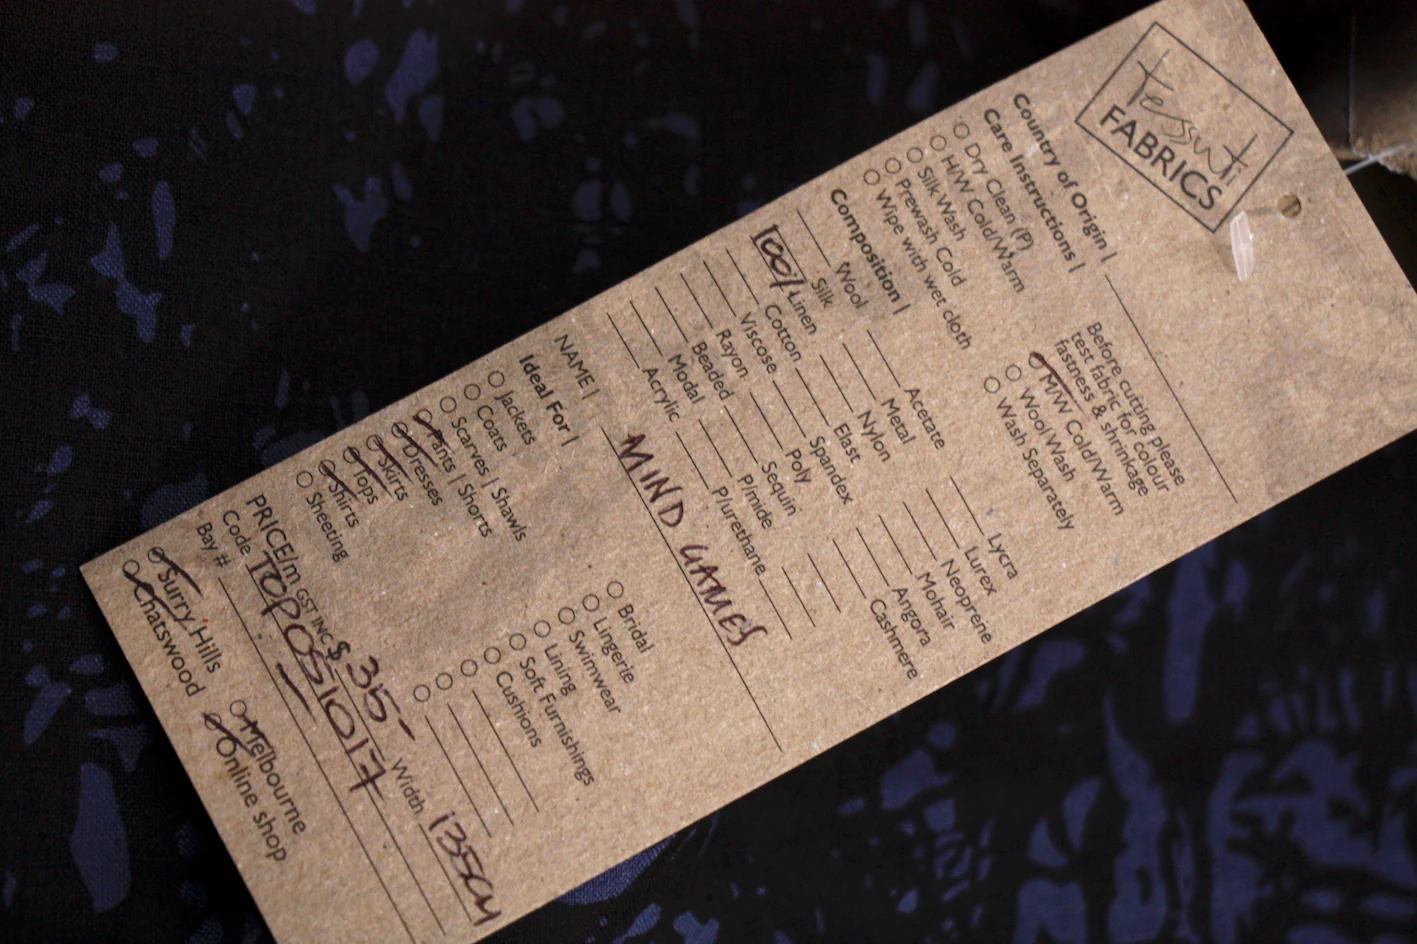 tessuti
FABRICS
Country of Origin |
Care Instructions |
Before cutting please
test fabric for colour
fastness & shrinkage
Dry Clean (P)
H/W Cold/Warm
Silk Wash
Prewash Cold
Wipe with wet cloth
M/W Cold/Warm
Wool Wash
Wash Separately
Composition |
Wool
Silk
100% Linen
Cotton
Viscose
Rayon
Beaded
Modal
Acrylic
Acetate
Metal
Nylon
Elast
Spandex
Poly
Sequin
P/mide
P/urethane
Lycra
Lurex
Neoprene
Mohair
Angora
Cashmere
NAME | MIND GAMES
Ideal For |
Jackets
Coats
Scarves | Shawls
Pants | Shorts
Dresses
Skirts
Tops
Shirts
Sheeting
Bridal
Lingerie
Swimwear
Lining
Soft Furnishings
Cushions
PRICE/m GST INC $ 35- Width 135cm
Code TOPOS1017
Bay # —
Surry Hills
Chatswood
Melbourne
Online shop